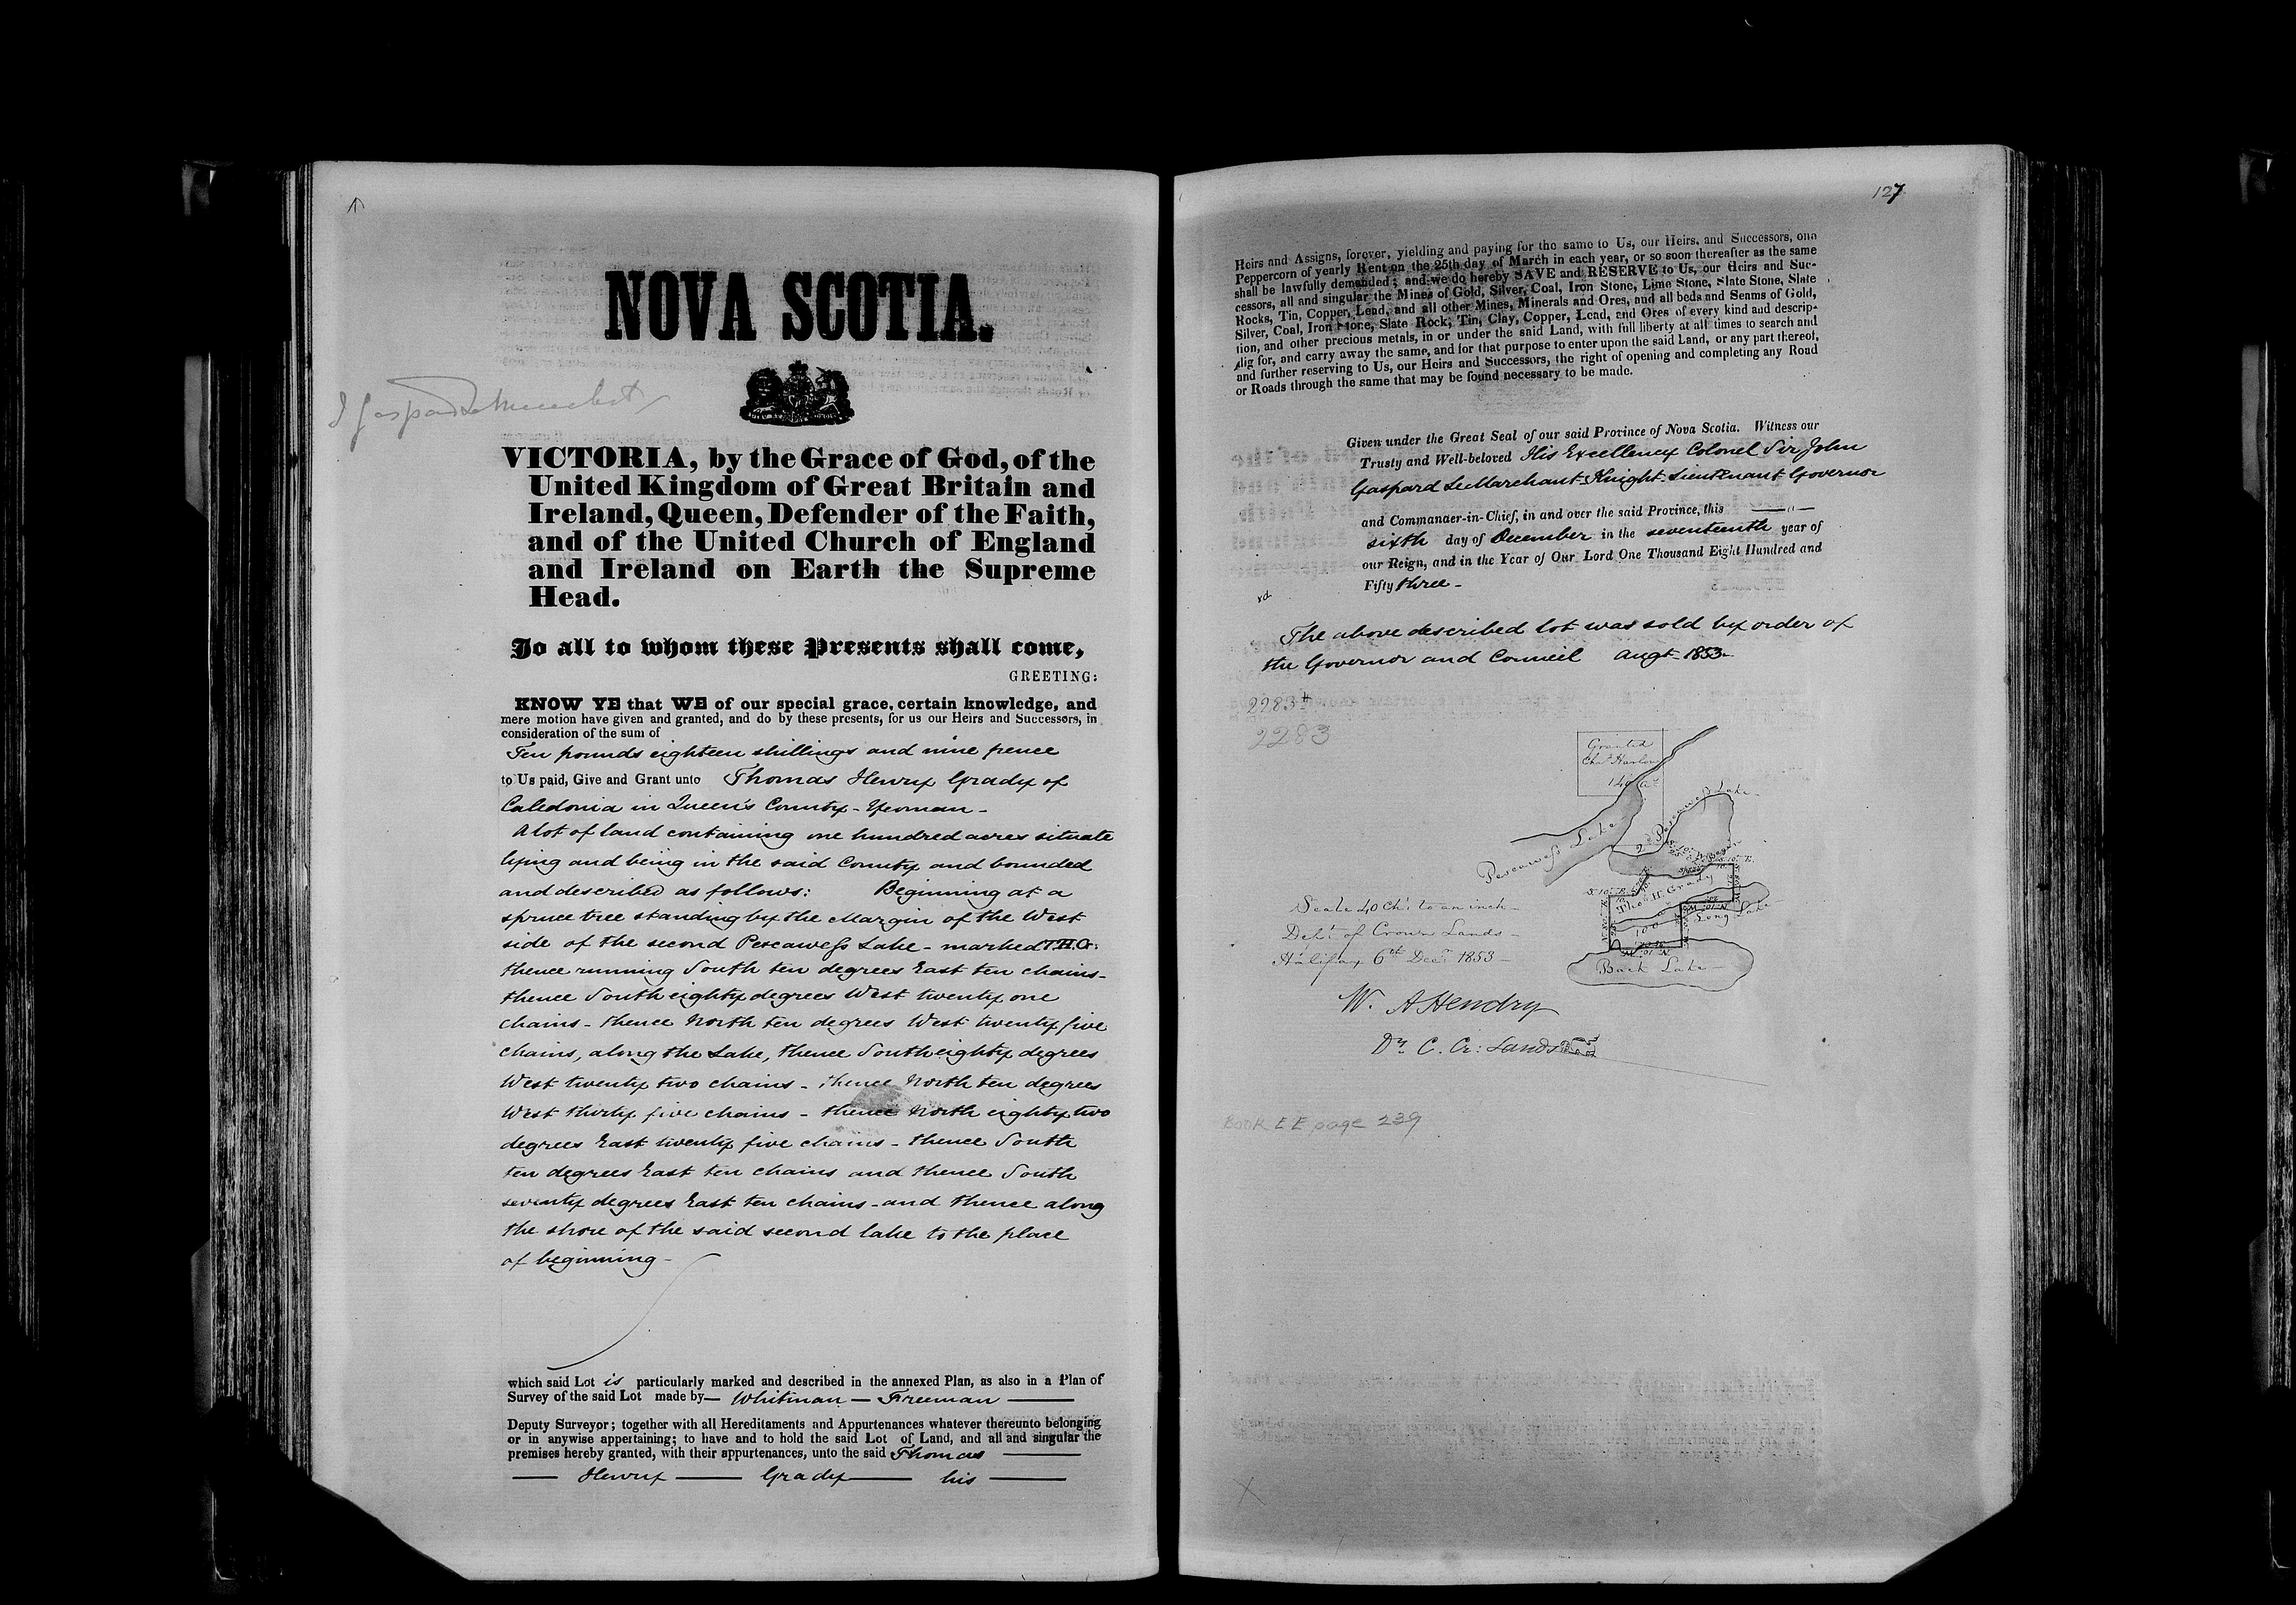 NOVA SCOTIA.
VICTORIA, by the Grace of God, of the
United Kingdom of Great Britain and
Ireland, Queen, Defender of the Faith,
and of the United Church of England
and Ireland on Earth the Supreme
Head.
To all to whom these Presents shall come,
GREETING:
KNOW YE that WE of our special grace, certain knowledge, and
mere motion have given and granted, and do by these presents, for us our Heirs and Successors, in
consideration of the sum of
Ten pounds eighteen shillings and nine pence
to Us paid, Give and Grant unto Thomas Henry Grady of
Caledonia in Queen's County - Yeoman -
A lot of land containing one hundred acres situate
lying and being in the said County and bounded
and described as follows: Beginning at a
spruce tree standing by the Margin of the West
side of the second Pescawess Lake - marked T.H.G:
thence running South ten degrees East ten chains -
thence South eighty degrees West twenty one
chains - thence North ten degrees West twenty five
chains, along the Lake, thence South eighty degrees
West twenty two chains - thence North ten degrees
West thirty five chains - thence North eighty two
degrees East twenty five chains - thence South
ten degrees East ten chains and thence South
seventy degrees East ten chains - and thence along
the shore of the said second lake to the place
of beginning -
which said Lot is particularly marked and described in the annexed Plan, as also in a Plan of
Survey of the said Lot made by — Whitman — Freeman —
Deputy Surveyor; together with all Hereditaments and Appurtenances whatever thereunto belonging
or in anywise appertaining; to have and to hold the said Lot of Land, and all and singular the
premises hereby granted, with their appurtenances, unto the said Thomas —
— Henry — Grady — his —
127
Heirs and Assigns, forever, yielding and paying for the same to Us, our Heirs, and Successors, one
Peppercorn of yearly Rent on the 25th day of March in each year, or so soon thereafter as the same
shall be lawfully demanded; and we do hereby SAVE and RESERVE to Us, our Heirs and Suc-
cessors, all and singular the Mines of Gold, Silver, Coal, Iron Stone, Lime Stone, Slate Stone, Slate
Rocks, Tin, Copper, Lead, and all other Mines, Minerals and Ores, and all beds and Seams of Gold,
Silver, Coal, Iron Stone, Slate Rock, Tin, Clay, Copper, Lead, and Ores of every kind and descrip-
tion, and other precious metals, in or under the said Land, with full liberty at all times to search and
dig for, and carry away the same, and for that purpose to enter upon the said Land, or any part thereof,
and further reserving to Us, our Heirs and Successors, the right of opening and completing any Road
or Roads through the same that may be found necessary to be made.
Given under the Great Seal of our said Province of Nova Scotia. Witness our
Trusty and Well-beloved His Excellency Colonel Sir John
Gaspard LeMarchant - Knight - Lieutenant Governor
and Commander-in-Chief, in and over the said Province, this
sixth day of December in the seventeenth year of
our Reign, and in the Year of Our Lord One Thousand Eight Hundred and
Fifty three -
The above described lot was sold by order of
the Governor and Council Augt 1853 -
2283
2283
Granted
Chas Harlow
140 as
Pescawess Lake
2nd Pescawess Lake
Thos H. Grady
100
Long Lake
Back Lake
Scale 40 Chs. to an inch -
Dept of Crown Lands -
Halifax 6th Decr 1853 -
W. A Hendry
Dy C. Cr: Lands
BOOK EE page 239